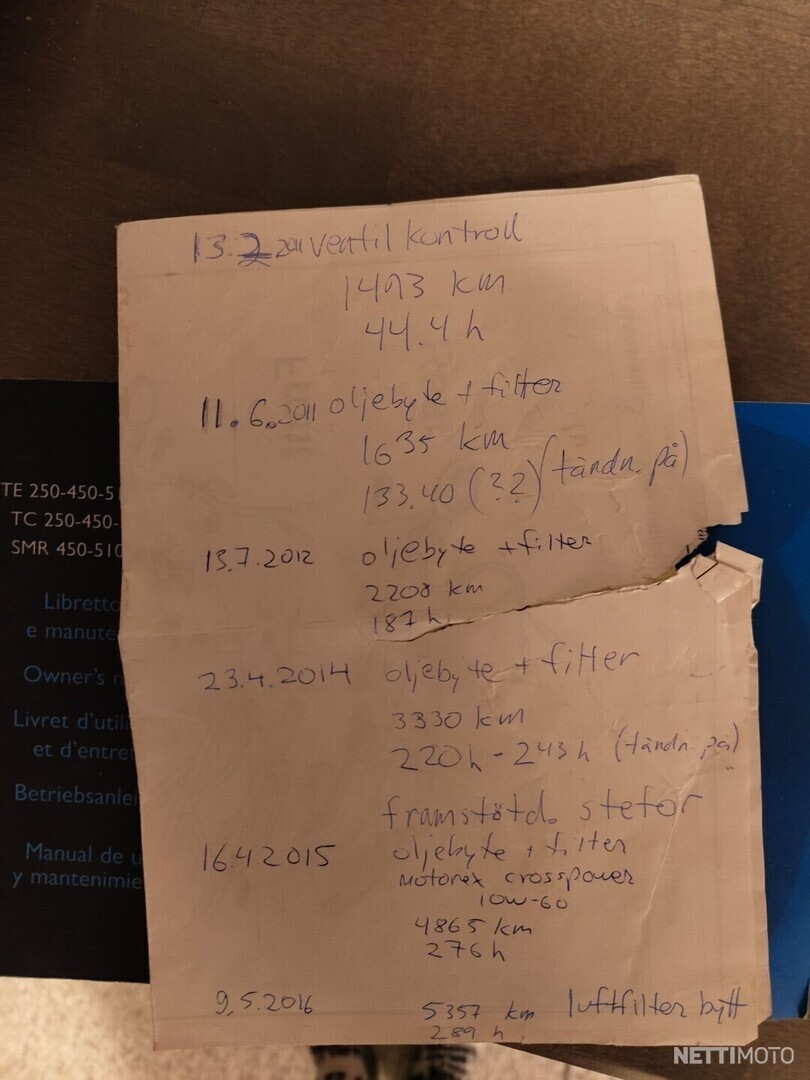 13.2 2011 ventil kontroll
1493 km
44.4 h
11.6.2011 oljebyte + filter
1635 km
133.40 (??) (tändn. på)
13.7.2012 oljebyte + filter
2208 km
187 h
23.4.2014 oljebyte + filter
3330 km
220h - 243h (tändn. på)
framstötd. stefor
16.4.2015 oljebyte + filter
motorex crosspower
10W-60
4865 km
276 h
9.5.2016 5357 km luftfilter bytt
289 h
TE 250-450-51
TC 250-450-
SMR 450-510
Libretto
e manute
Owner's
Livret d'util
et d'entre
Betriebsanlei
Manual de u
y mantenimie
NETTIMOTO